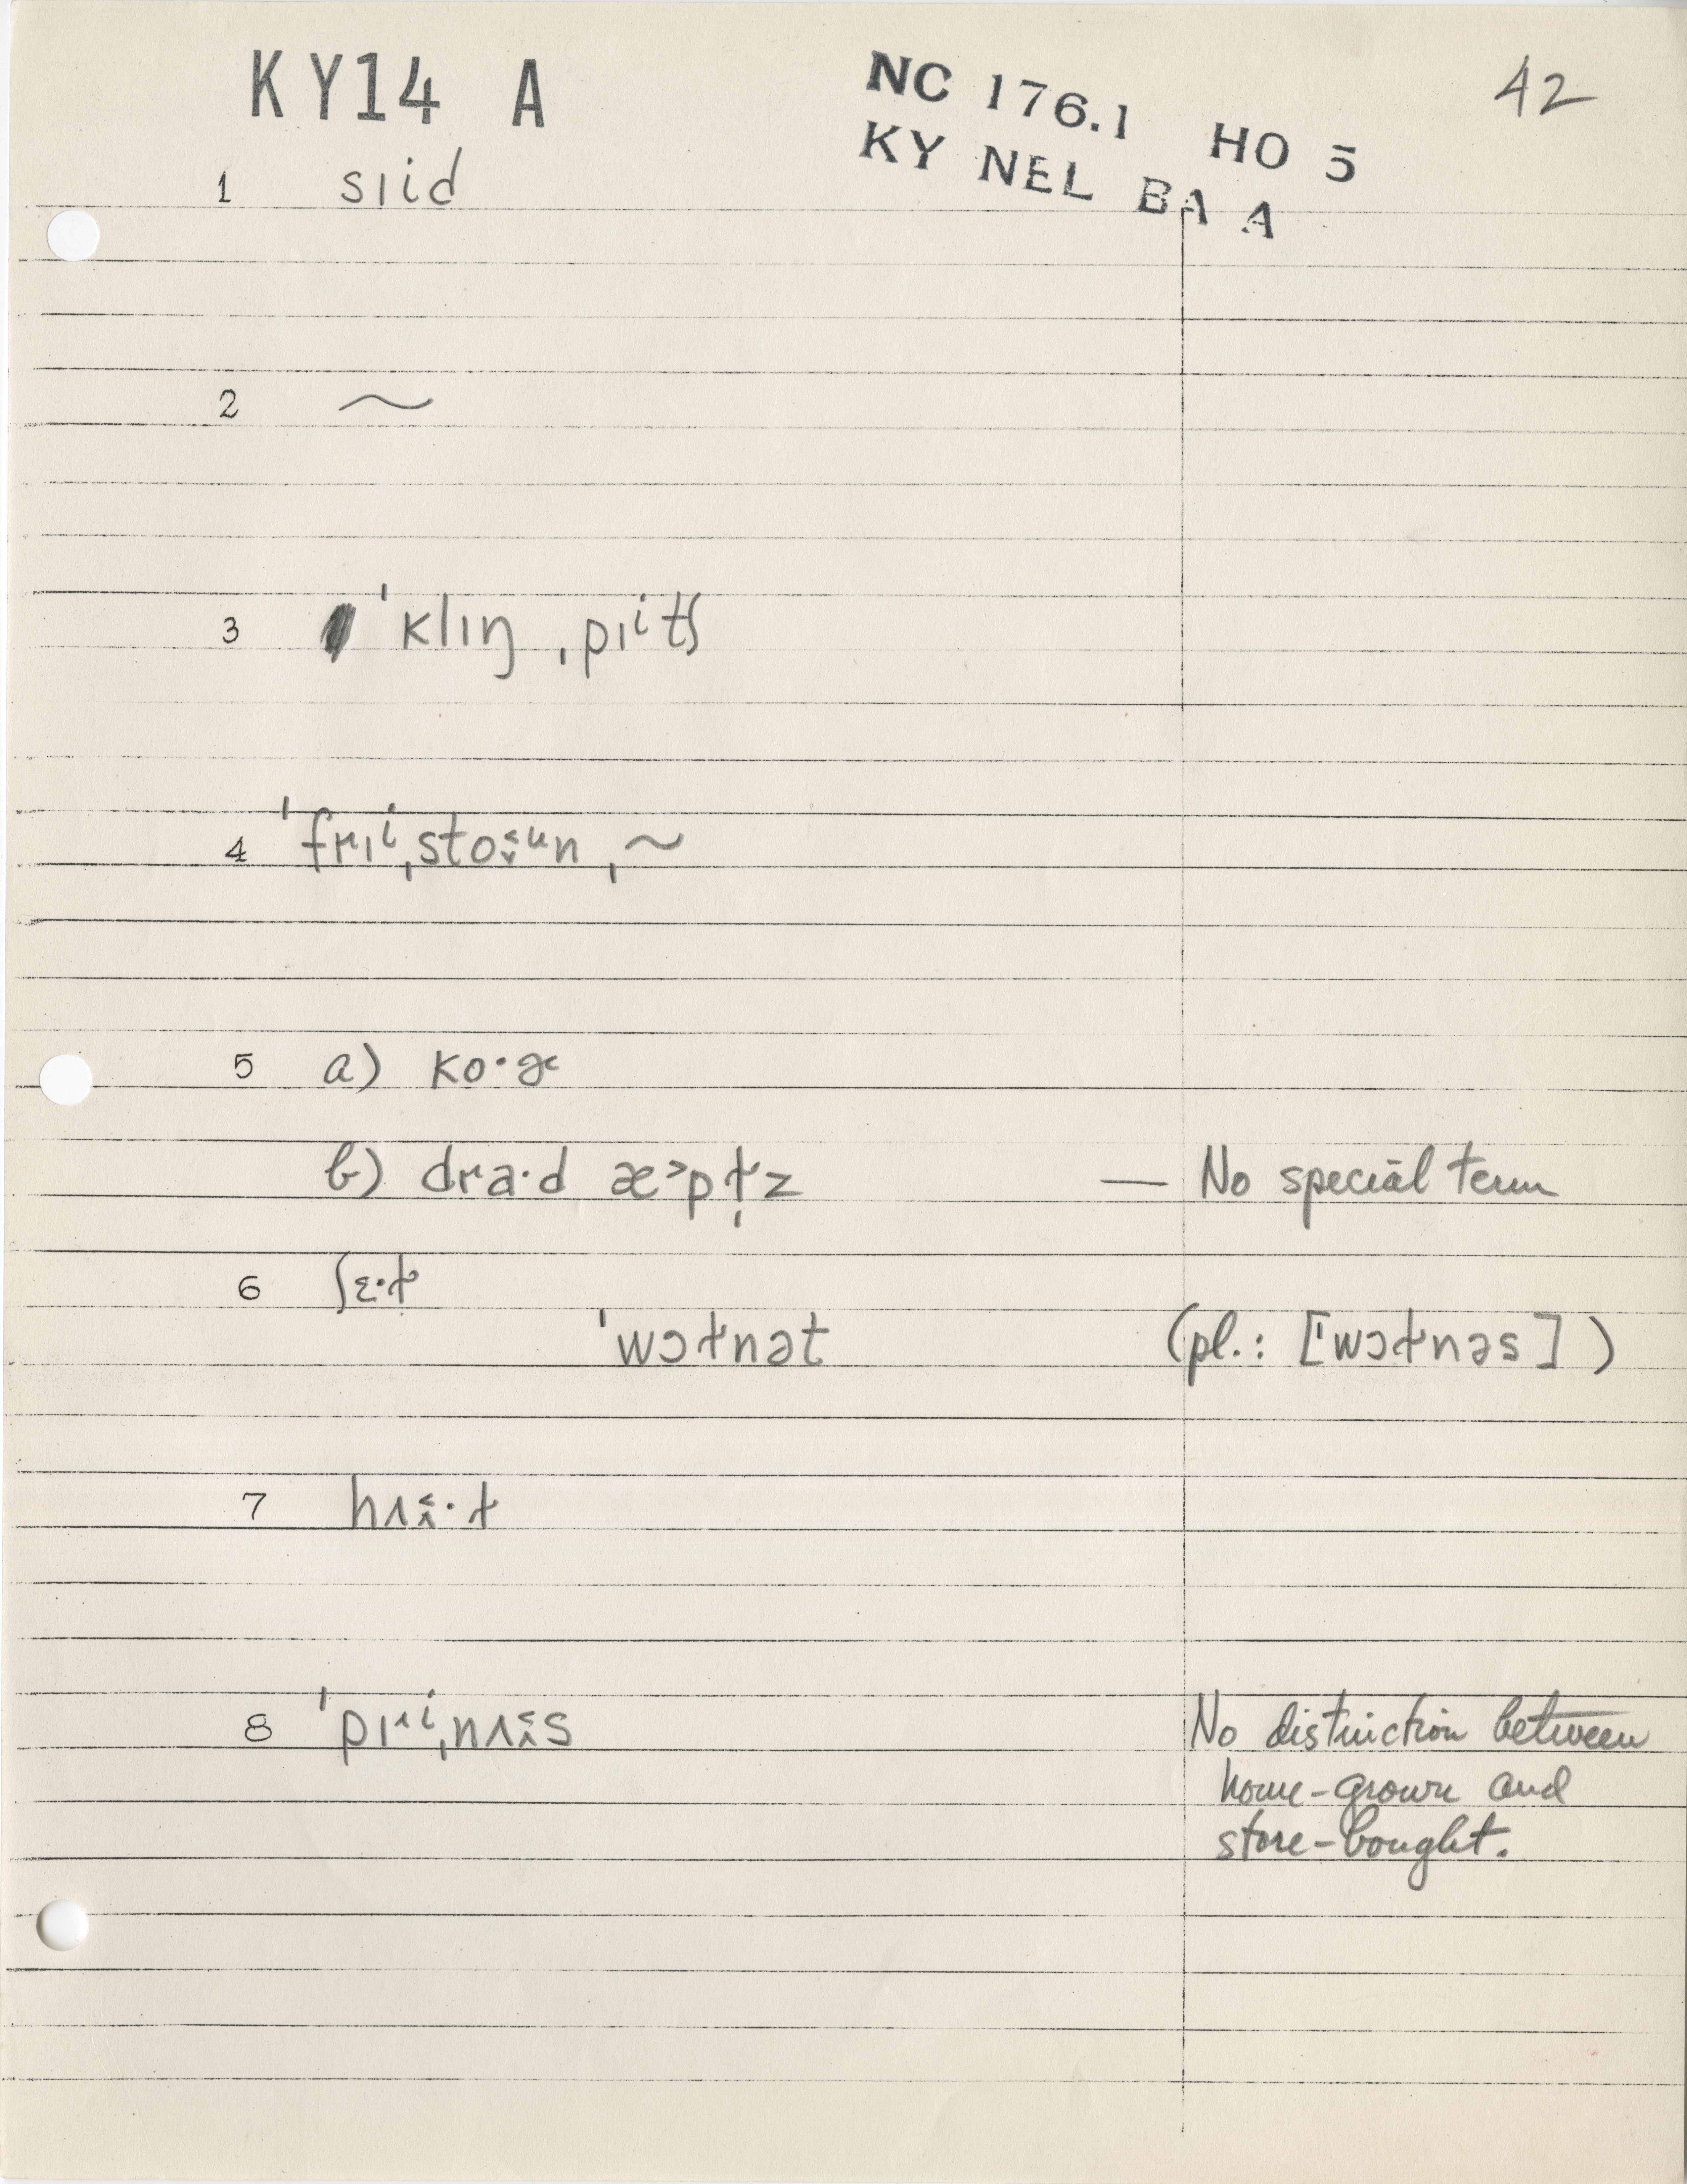 KY14 A
NC 176.1 HO 5
42
KY NEL BA A
1 sɪid
2 ~
3 ˈklɪŋ ˌpɪⁱtʃ
4 ˈfrɪⁱˌstoˑᵘn ˌ~
5 a) ko·ɚ
b) dra·d æ˃pɫ̩z — No special term
6 ʃɛ·ɫ
ˈwɔɫnət (pl.: [ˈwɔɫnəs])
7
8
No distinction between
home-grown and
store-bought.